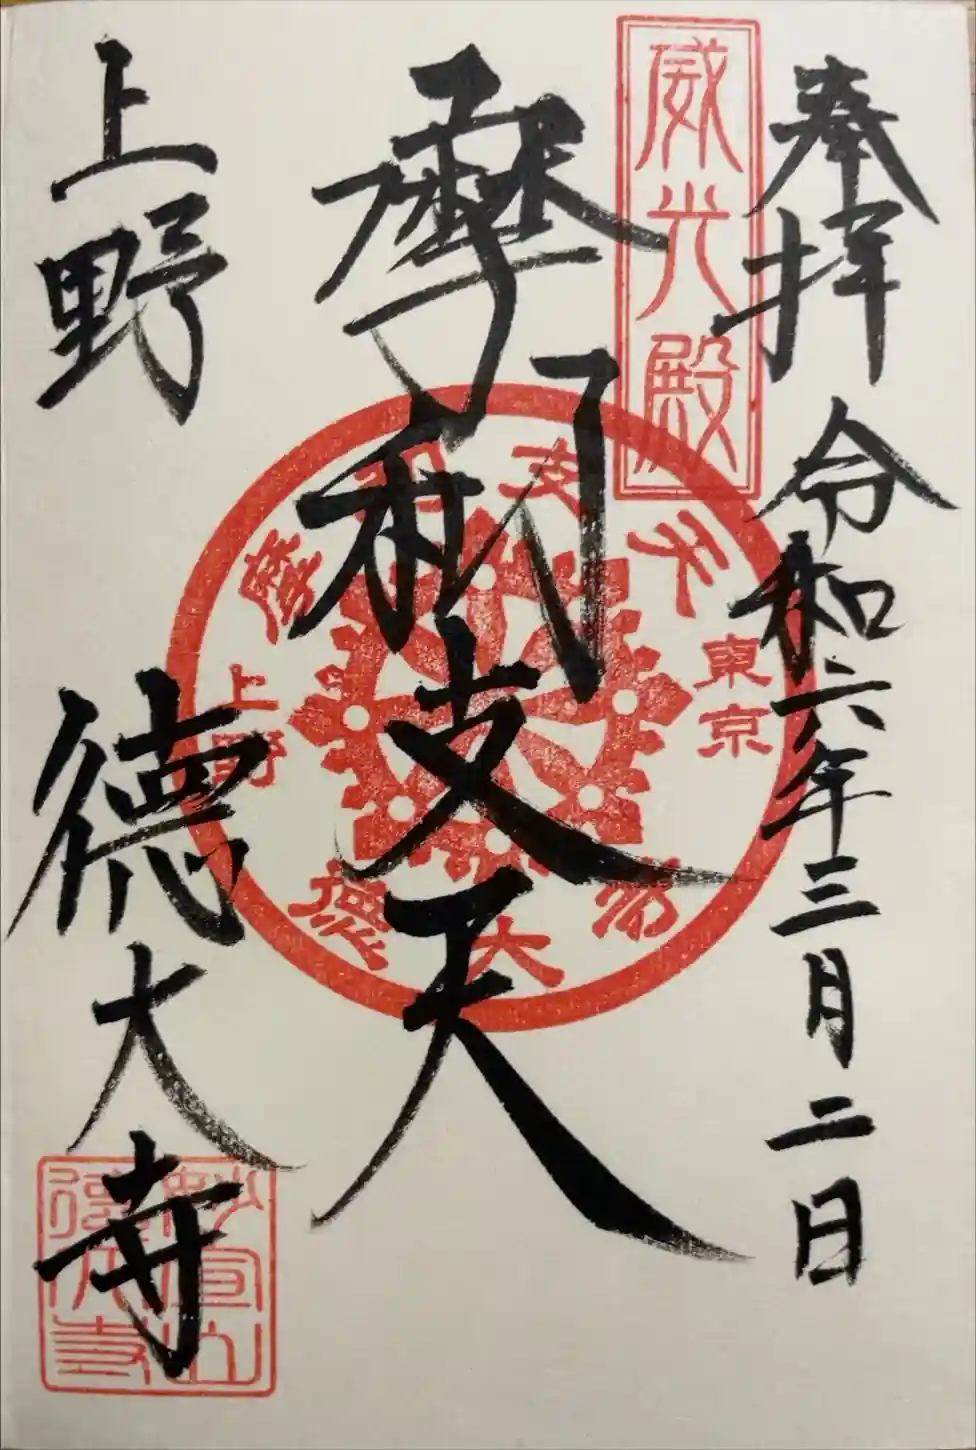 奉拝 令和六年三月二日
威光殿
摩利支天
摩利支天
東京
上野
徳大寺
上野 徳大寺
妙宣山
徳大寺